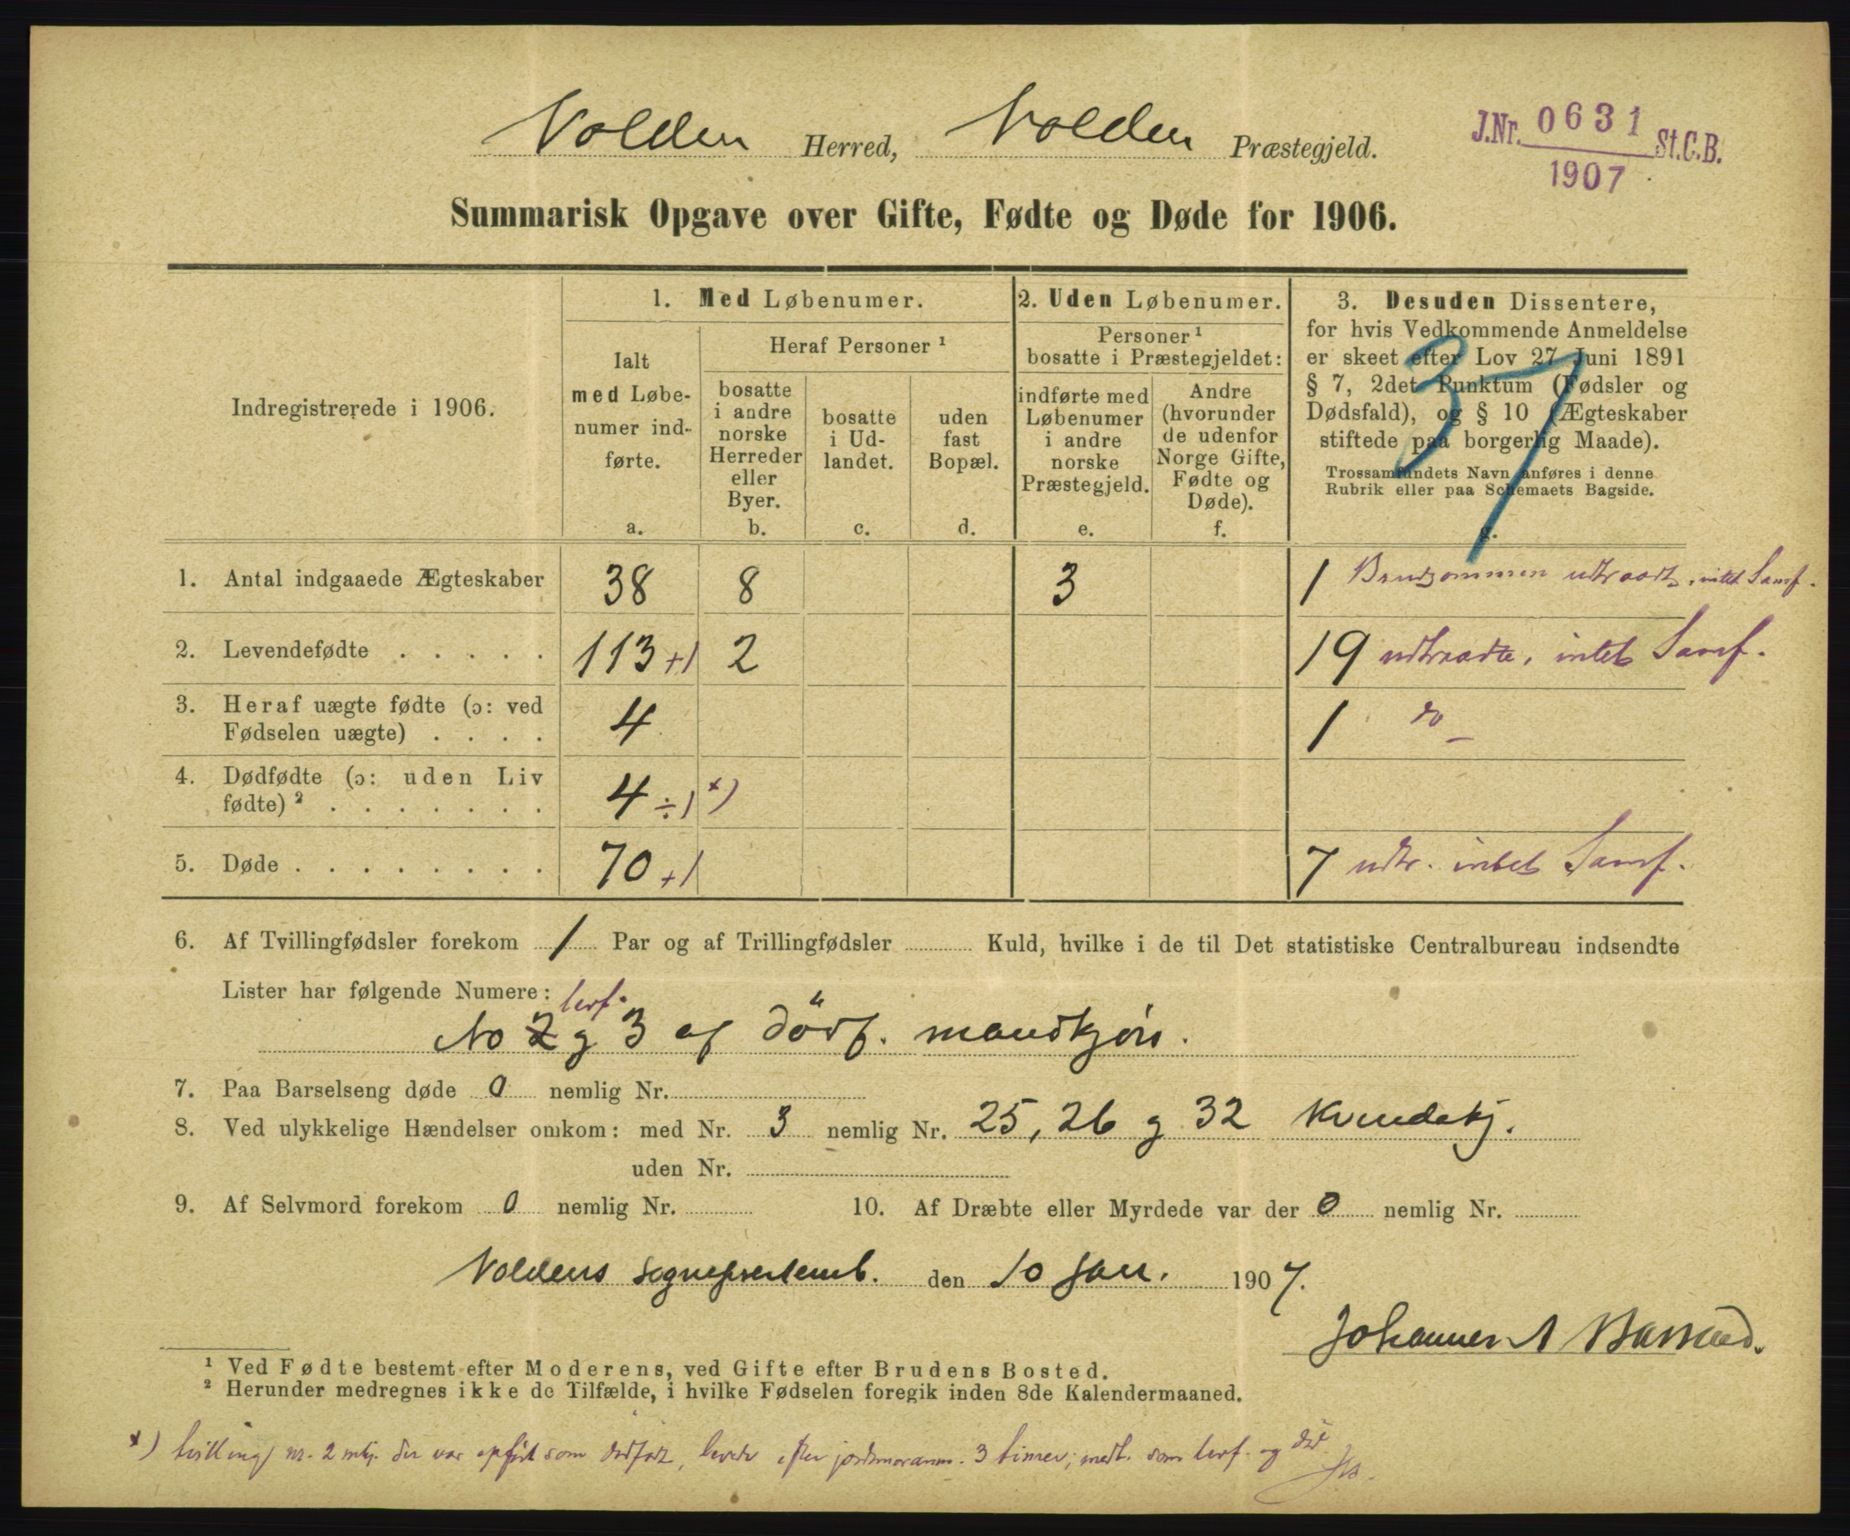 Volden Herred, Volden Præstegjeld.
J.Nr. 0631 St.C.B.
1907
Summarisk Opgave over Gifte, Fødte og Døde for 1906.
37
Indregistrerede i 1906.
1. Med Løbenumer.
Ialt
med Løbe-
numer ind-
førte.
a.
Heraf Personer ¹
bosatte
i andre
norske
Herreder
eller
Byer.
b.
bosatte
i Ud-
landet.
c.
uden
fast
Bopæl.
d.
2. Uden Løbenumer.
Personer ¹
bosatte i Præstegjeldet:
indførte med
Løbenumer
i andre
norske
Præstegjeld.
e.
Andre
(hvorunder
de udenfor
Norge Gifte,
Fødte og
Døde).
f.
3. Desuden Dissentere,
for hvis Vedkommende Anmeldelse
er skeet efter Lov 27 Juni 1891
§ 7, 2det Punktum (Fødsler og
Dødsfald), og § 10 (Ægteskaber
stiftede paa borgerlig Maade).
Trossamfundets Navn anføres i denne
Rubrik eller paa Schemaets Bagside.
g.
1. Antal indgaaede Ægteskaber 38 8 3 1 Brudgommen udtraadt, intet Samf.
2. Levendefødte . . . . . 113 +1 2 19 udtraadte, intet Samf.
3. Heraf uægte fødte (ɔ: ved
Fødselen uægte) . . . . 4 1 do
4. Dødfødte (ɔ: uden Liv
fødte) ² . . . . . . . 4 ÷1 *)
5. Døde . . . . . . . . 70 +1 7 udtr. intet Samf.
6. Af Tvillingfødsler forekom 1 Par og af Trillingfødsler Kuld, hvilke i de til Det statistiske Centralbureau indsendte
Lister har følgende Numere:
levf.
No 2 g 3 af dödf. mandkjön.
7. Paa Barselseng døde 0 nemlig Nr.
8. Ved ulykkelige Hændelser omkom: med Nr. 3 nemlig Nr. 25, 26 g 32 Kvindekj.
uden Nr.
9. Af Selvmord forekom 0 nemlig Nr. 10. Af Dræbte eller Myrdede var der 0 nemlig Nr.
Voldens sogneprestemb. den 10 Jan. 1907.
Johannes A Barstad.
¹ Ved Fødte bestemt efter Moderens, ved Gifte efter Brudens Bosted.
² Herunder medregnes ikke de Tilfælde, i hvilke Fødselen foregik inden 8de Kalendermaaned.
*) tvilling nr. 2 mkj. der var opført som dødfødt, levede efter jordmoranm. 3 timer; medt. som levf. og død.